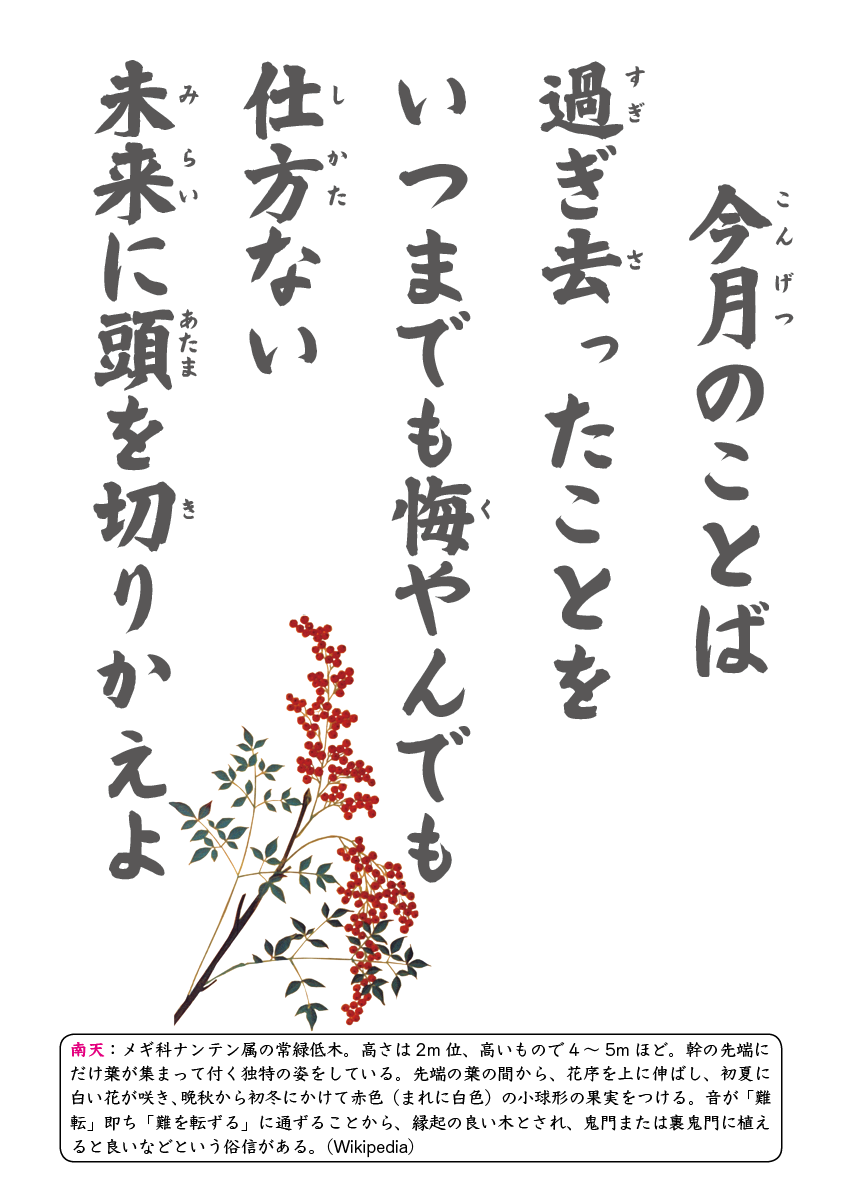 今月のことば
こんげつ
過ぎ去ったことを
すぎ さ
いつまでも悔やんでも
く
仕方ない
しかた
未来に頭を切りかえよ
みらい あたま き
南天：メギ科ナンテン属の常緑低木。高さは2m 位、高いもので4～5m ほど。幹の先端に
だけ葉が集まって付く独特の姿をしている。先端の葉の間から、花序を上に伸ばし、初夏に
白い花が咲き、晩秋から初冬にかけて赤色（まれに白色）の小球形の果実をつける。音が「難
転」即ち「難を転ずる」に通ずることから、縁起の良い木とされ、鬼門または裏鬼門に植え
ると良いなどという俗信がある。（Wikipedia）